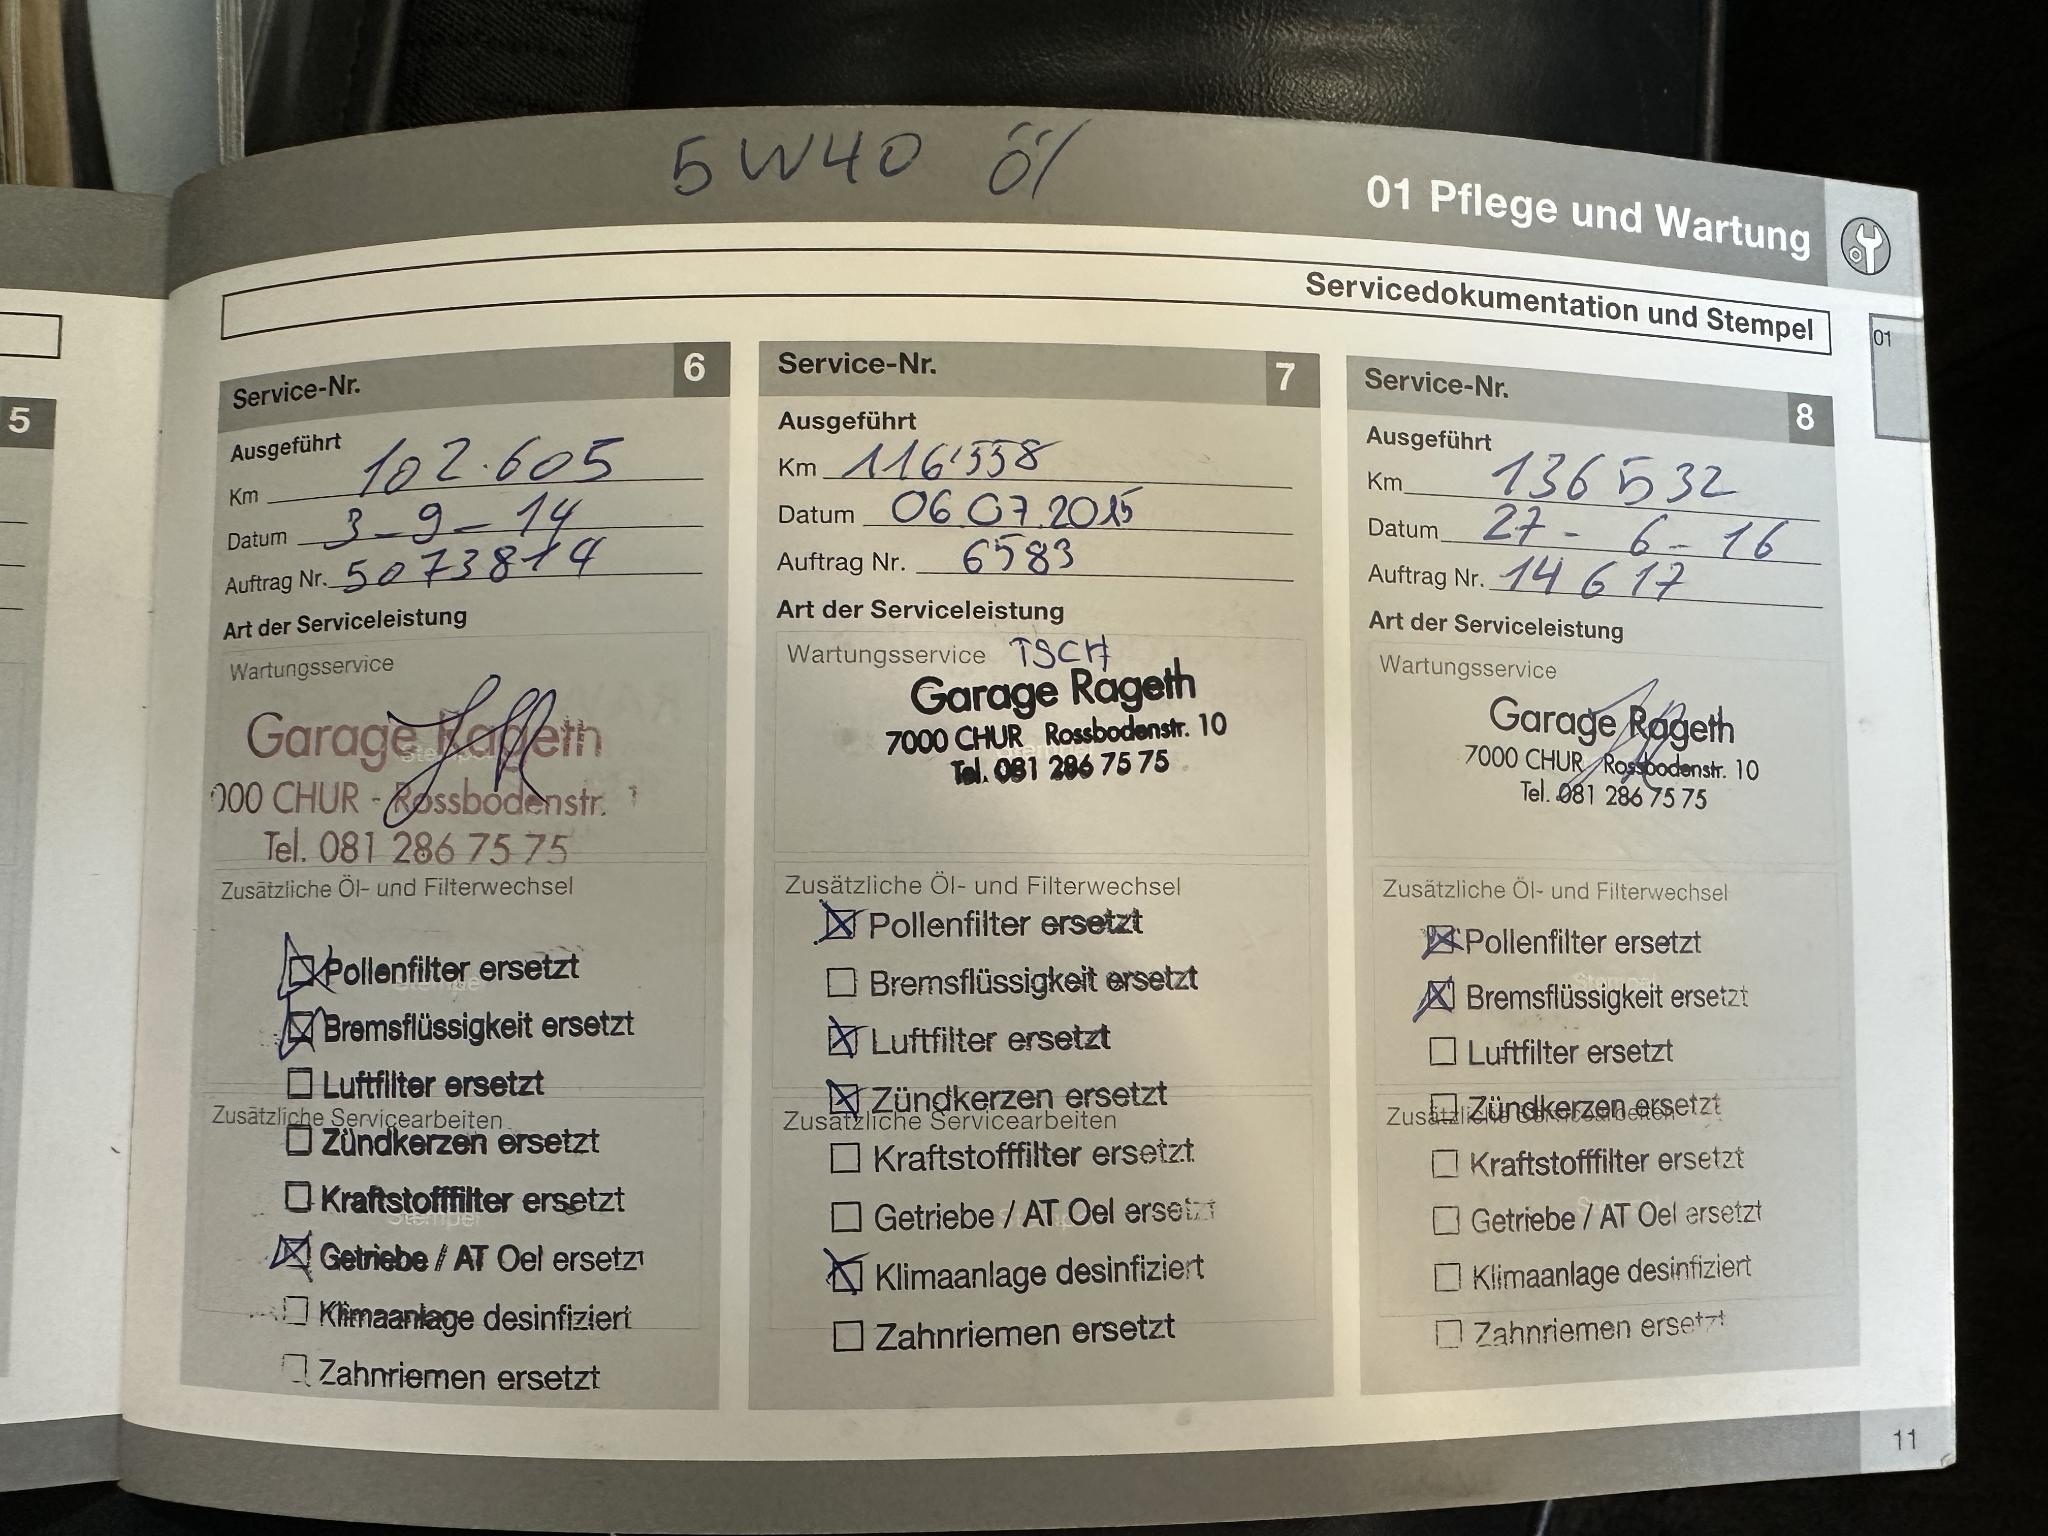 5W40 Öl
01 Pflege und Wartung
Servicedokumentation und Stempel
01
5
Service-Nr. 6
Ausgeführt
Km 102.605
Datum 3-9-14
Auftrag Nr. 5073814
Art der Serviceleistung
Wartungsservice
Garage Rageth
000 CHUR - Rossbodenstr. 1
Tel. 081 286 75 75
Zusätzliche Öl- und Filterwechsel
Pollenfilter ersetzt
Stempel
Bremsflüssigkeit ersetzt
Luftfilter ersetzt
Zusätzliche Servicearbeiten
Zündkerzen ersetzt
Kraftstofffilter ersetzt
Stempel
Getriebe / AT Oel ersetzt
Klimaanlage desinfiziert
Zahnriemen ersetzt
Service-Nr. 7
Ausgeführt
Km 116'558
Datum 06.07.2015
Auftrag Nr. 6583
Art der Serviceleistung
Wartungsservice TSCH
Garage Rageth
7000 CHUR Rossbodenstr. 10
Tel. 081 286 75 75
Zusätzliche Öl- und Filterwechsel
Pollenfilter ersetzt
Bremsflüssigkeit ersetzt
Luftfilter ersetzt
Zündkerzen ersetzt
Zusätzliche Servicearbeiten
Kraftstofffilter ersetzt
Getriebe / AT Oel ersetzt
Klimaanlage desinfiziert
Zahnriemen ersetzt
Service-Nr. 8
Ausgeführt
Km 136532
Datum 27-6-16
Auftrag Nr. 14617
Art der Serviceleistung
Wartungsservice
Garage Rageth
7000 CHUR Rossbodenstr. 10
Tel. 081 286 75 75
Zusätzliche Öl- und Filterwechsel
Pollenfilter ersetzt
Stempel
Bremsflüssigkeit ersetzt
Luftfilter ersetzt
Zündkerzen ersetzt
Zusätzliche Servicearbeiten
Kraftstofffilter ersetzt
Stempel
Getriebe / AT Oel ersetzt
Klimaanlage desinfiziert
Zahnriemen ersetzt
11